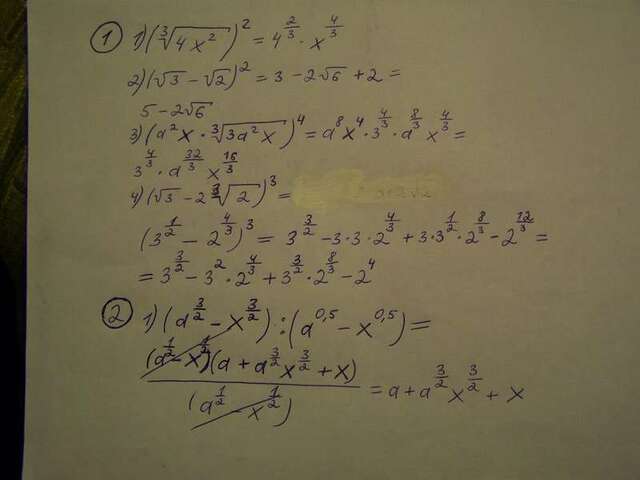 ① 1) (∛(4x²))² = 4^(2/3) · x^(4/3)
2) (√3 − √2)² = 3 − 2√6 + 2 =
5 − 2√6
3) (a²x · ∛(3a²x))⁴ = a⁸x⁴ · 3^(4/3) · a^(8/3) x^(4/3) =
3^(4/3) · a^(32/3) x^(16/3)
4) (√3 − 2∛2)³ =
(3^(1/2) − 2^(4/3))³ = 3^(3/2) − 3·3·2^(4/3) + 3·3^(1/2)·2^(8/3) − 2^(12/3) =
= 3^(3/2) − 3²·2^(4/3) + 3^(3/2)·2^(8/3) − 2⁴
② 1) (a^(3/2) − x^(3/2)) : (a^0,5 − x^0,5) =
(a^(1/2) − x^(1/2))(a + a^(3/2)x^(3/2) + x)
(a^(1/2) − x^(1/2))
= a + a^(3/2) x^(3/2) + x